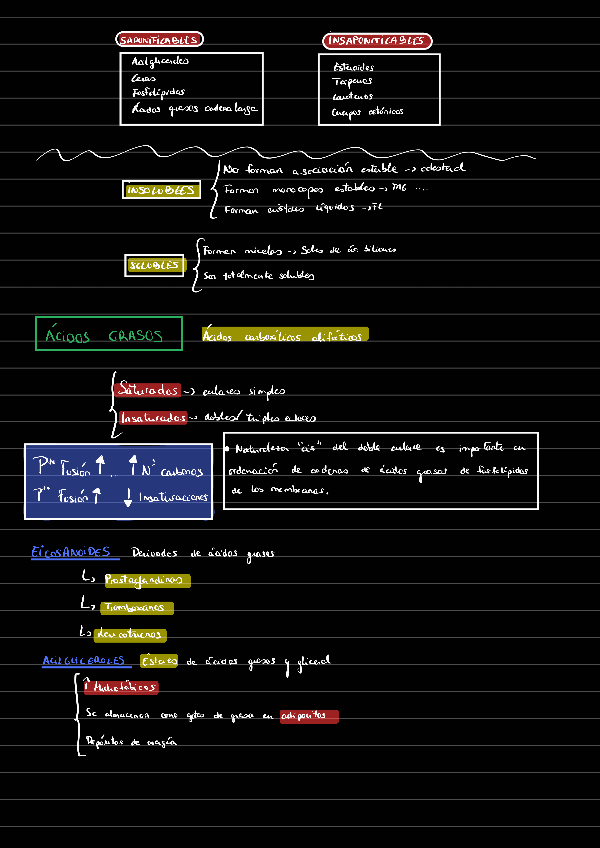 SAPONIFICABLES
INSAPONIFICABLES
Acilgliceroles
Ceras
Fosfolípidos
Ácidos grasos cadena larga
Esteroides
Terpenos
Carotenos
Cuerpos cetónicos
INSOLUBLES
No forman asociación estable → colesterol
Forman monocapas estables → TAG ....
Forman cristales líquidos → FL
SOLUBLES
Forman micelas → Sales de ác. biliares
Son totalmente solubles
ÁCIDOS GRASOS
Ácidos carboxílicos alifáticos
Saturados → enlaces simples
Insaturados → dobles / triples enlaces
Pto Fusión ↑ .. ↑ Nº carbonos
Pto Fusión ↑ ↓ Insaturaciones
• Naturaleza "cis" del doble enlace es importante en
ordenación de cadenas de ácidos grasos de fosfolípidos
de las membranas.
EICOSANOIDES Derivados de ácidos grasos
↳ Prostaglandinas
↳ Tromboxanos
↳ Leucotrienos
ACILGLICEROLES Ésteres de ácidos grasos y glicerol
↑ Hidrofóbicos
Se almacenan como gotas de grasa en adipocitos
Depósitos de energía